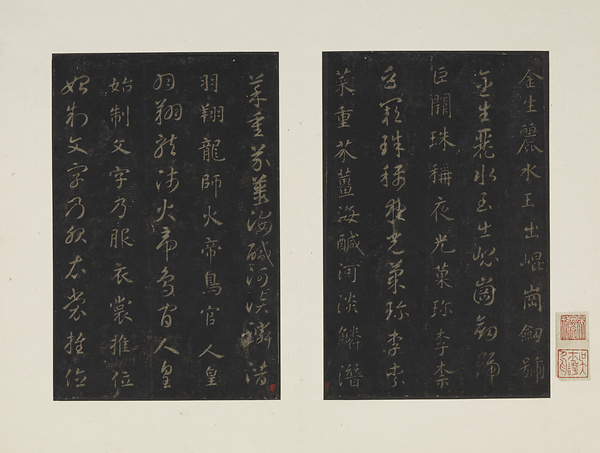 金生麗水玉出崐崗劒號
金生麗水玉出崐崗劒號
巨闕珠稱夜光菓珍李柰
巨闕珠稱夜光菓珍李柰
菜重芥薑海醎河淡鱗潛
菜重芥薑海醎河淡鱗潛
羽翔龍師火帝鳥官人皇
羽翔龍師火帝鳥官人皇
始制文字乃服衣裳推位
始制文字乃服衣裳推位